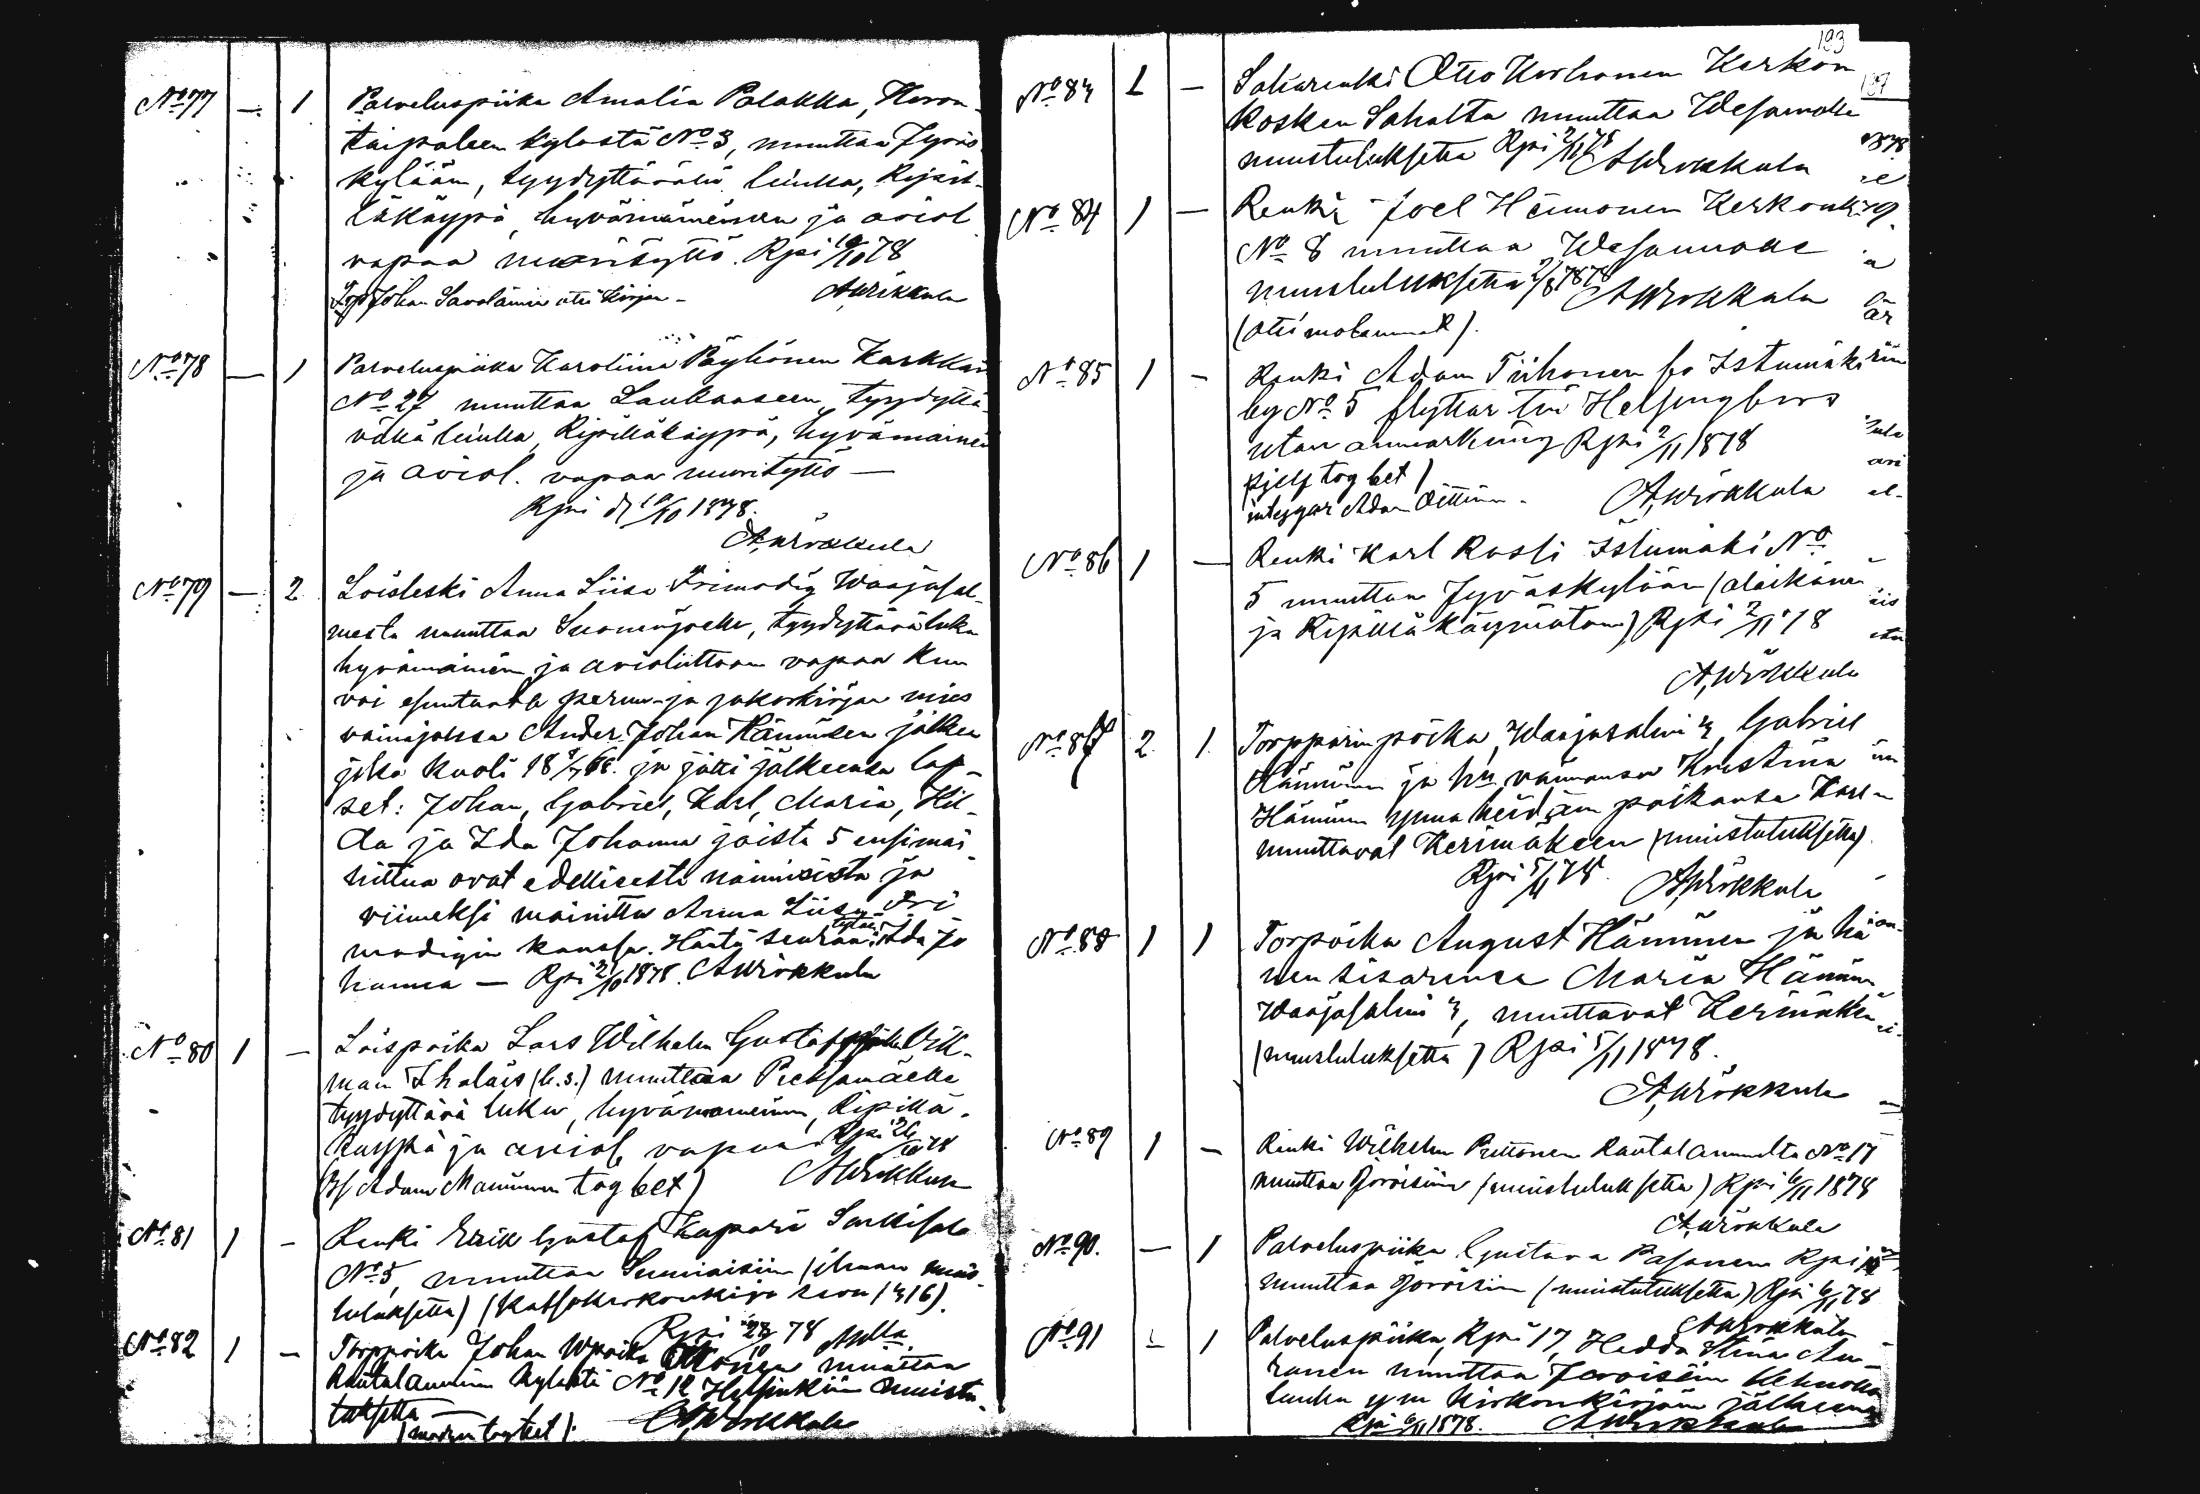 No 77 — 1 Palveluspiika Amalia Palokka, Kovon-
taipaleen kylästä No 3, muuttaa Jyväs-
kylään, tyydyttävällä luulla, Ripil-
läkäypä, hyvämaineinen ja aviol.
vapaa nuorityttö. Rpi 19/10 78
Johan Savolainen otti kirjan – AWirkkula
No 78 — 1 Palveluspiika Karoliina Pöyhönen Karkkai
No 27 muuttaa Laukaaseen, tyydyttä-
vällä luulla, Ripilläkäypä, hyvämainei
ja aviol. vapaa nuorityttö —
Rpi d. 19/10 1878.
AWirkkula
No 79 — 2 Loisleski Anna Liisa Frimodig Waajasal-
mesta muuttaa Suonenjoelle, tyydyttävä luku
hyvämainen ja avioliittoon vapaa kun
voi esuntaa perun- ja jakokirjan mies
vainajansa Ander Johan Hännisen jälkeen
joka kuoli 18 68. ja jätti jälkeensä lap-
set: Johan, Gabriel, Karl, Maria, Hil-
da ja Ida Johanna joista 5 ensimäi-
nittua ovat edellisestä naimisista ja
viimeksi mainittu Anna Liisa Fri
modigin kanssa. Häntä seuraa tytär Ida Jo
hanna — Rpi 21/10 1878. AWirkkula
No 80 1 — Loispoika Lars Wilhelm Gustafpoika Wik-
man Ihalais (k.s.) muuttaa Pieksamäelle
tyydyttävä luku, hyvämaineinen, Ripillä-
käypä ja aviol. vapaa Rpi 26/10 78
(Bs Adam Manninen tog bet) AWirkkula
No 81 1 — Renki Erik Gustaf Kapari Sarkisalo
No 5, muuttaa Sumiaisiin (ilman muis-
tutuksetta) (katso kirkonkirja sivu 1416).
Rpi 28/10 78
No 82 1 — Torppoika Johan Wpoika muuttaa
Rautalammin kylästä No 12 Helsinkiin muistu-
tuksetta —
(modren tog bet). AWirkkula
193
197
No 83 1 — Saharenki Otto Korhonen Kerkon
kosken Sahalta muuttaa Wesannolle
muistutuksetta Rpi 2/11 78 AWirkkula
No 84 1 — Renki Joel Heimonen Kerkonk.
No 8 muuttaa Wesannolle
muistutuksetta 1878 AWirkkula
(otti molemmat).
No 85 1 — Renki Adam Tiihonen fr Istunmäki
by No 5 flyttar till Helsingfors
utan anmärkning Rpi 2/11 1878
sjelf tog bet)
intygar Adam Oittinen. AWirkkula
No 86 1 — Renki Karl Rossi Istunmäki No
5 muuttaa Jyväskylään (alaikäinen
ja Ripillä käymätön) Rpi 2/11 78
AWirkkula
No 87 2 1 Torpparinpoika, Waajasalmi 4, Gabriel
Hänninen ja hn vaimonsa Kristina
Hänninen ynnä heidän poikansa Karl
muuttavat Kerimäkeen (muistutuksetta).
Rpi 5/11 78. AWirkkula
No 88 1 1 Torpoika August Hänninen ja hä
nen sisarensa Maria Hänninen
Waajasalmi 4, muuttavat Kerimäke
(muistutuksetta) Rpi 5/11 1878.
AWirkkula
No 89 1 — Renki Wilhelm Puttonen Rautalammilta No 17
muuttaa Joroisiin (muistutuksetta) Rpi 6/11 1878
AWirkkula
No 90. — 1 Palveluspiika Gustava Pasanen Rpi
muuttaa Joroisiin (muistutuksetta) Rpi 6/11 78
AWirkkula
No 91 — 1 Palveluspiika, Rpi 17, Hedda Stina
muuttaa Joroisiin
luulu y m kirkonkirjain jälkeen
Rpi 6/11 1878. AWirkkula